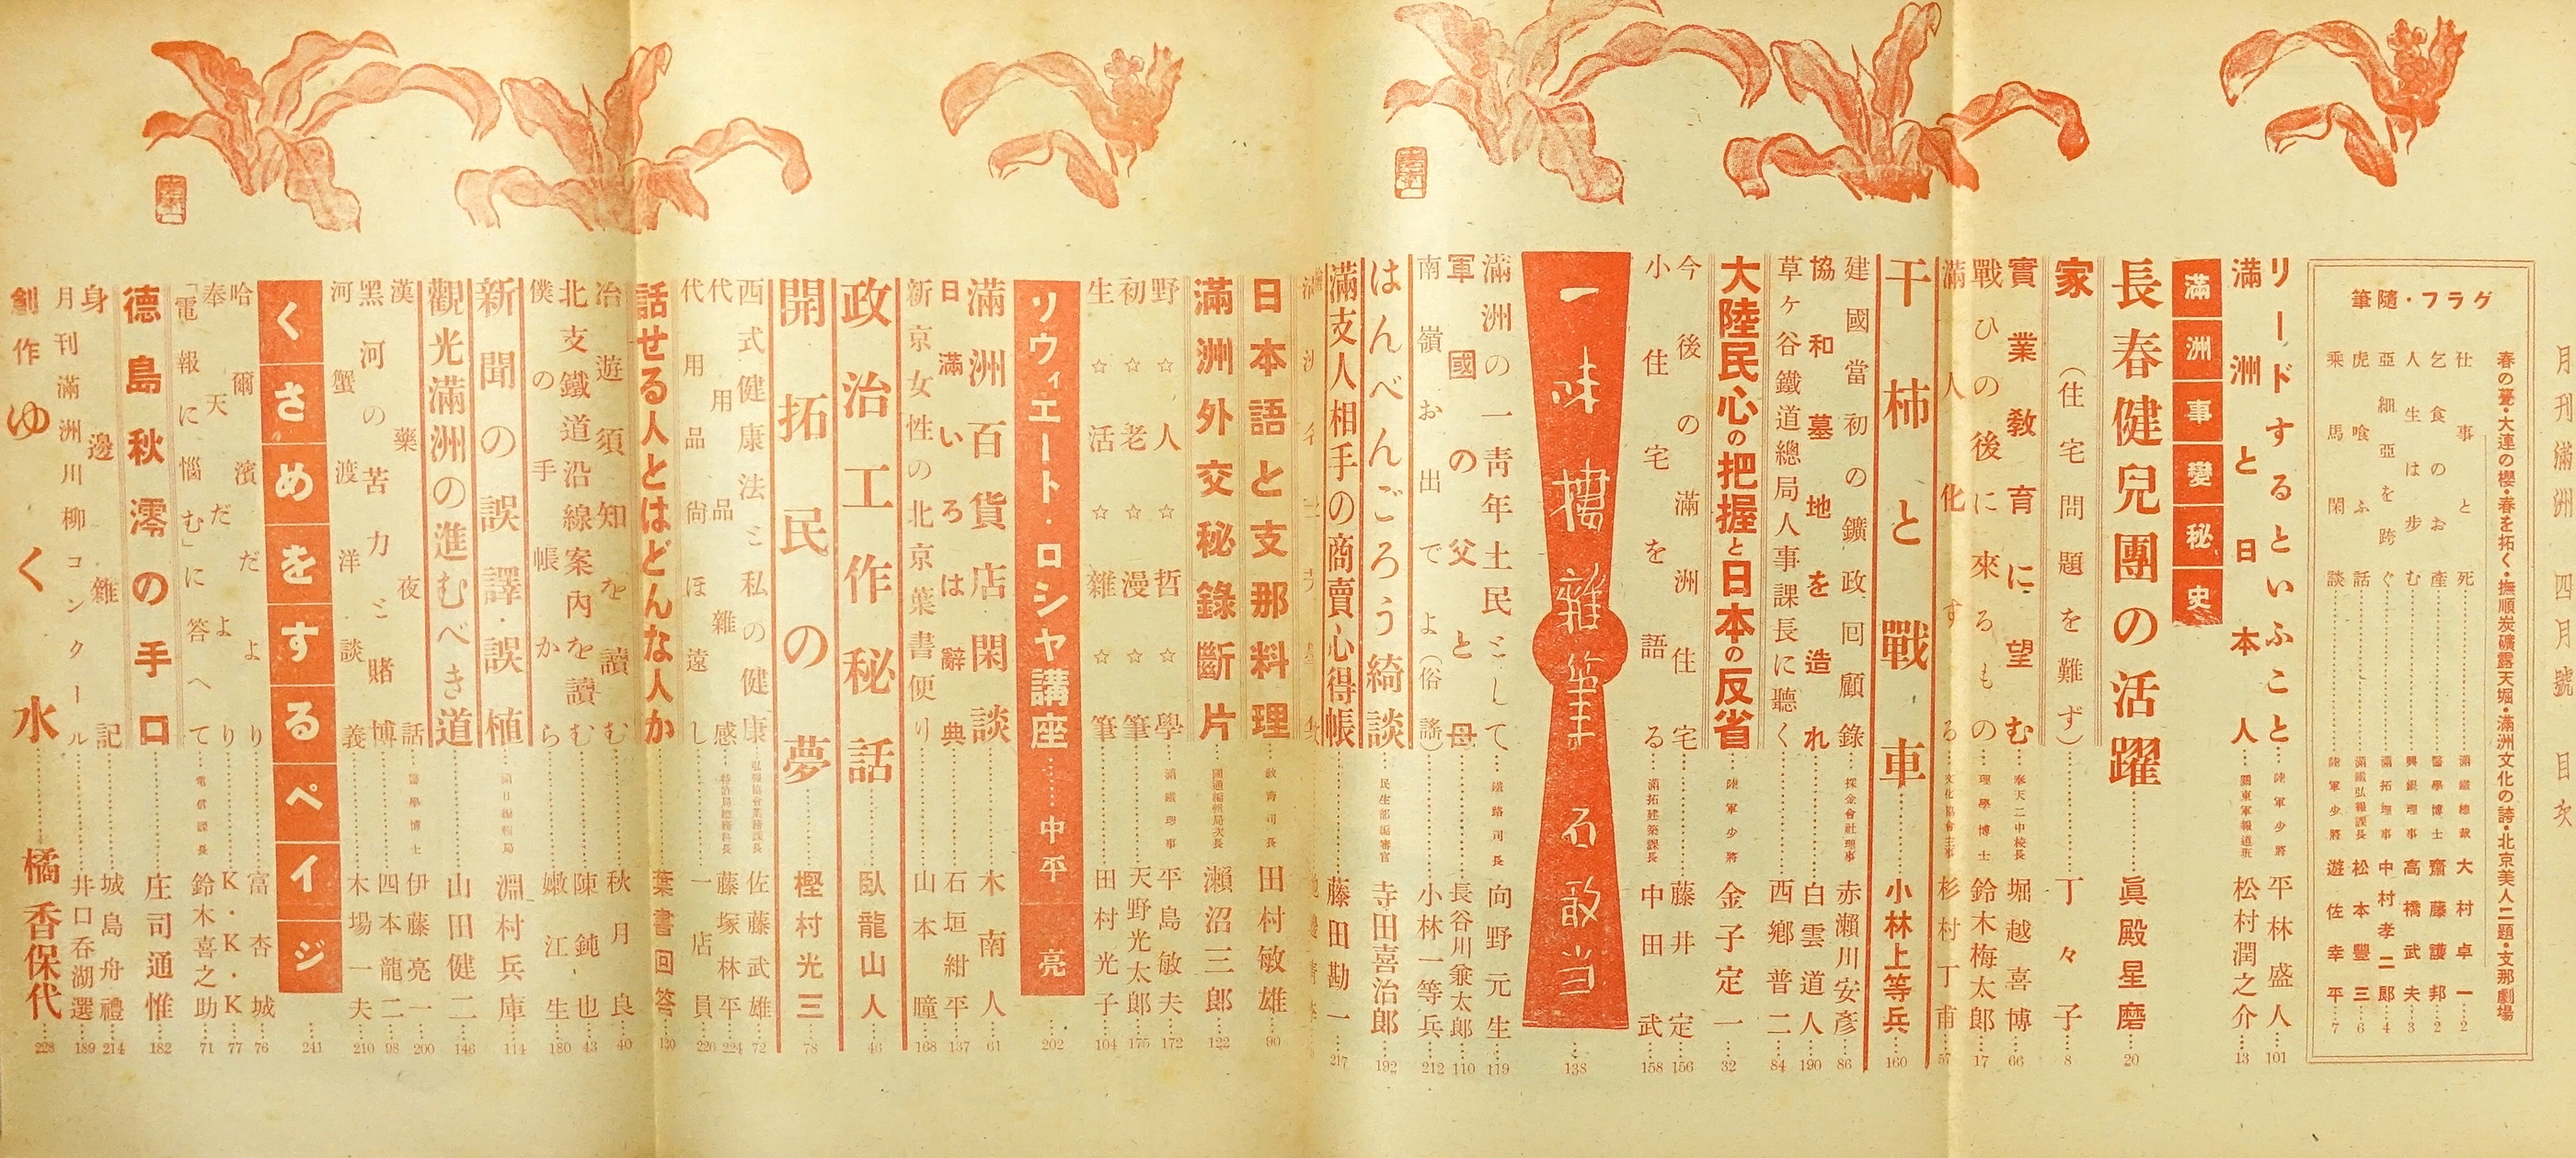 月刊滿洲 四月號 目次
グラフ・隨筆
春の甍・大連の櫻・春を拓く・撫順炭礦露天堀・滿洲文化の誇・北京美人二題・支那劇場
仕事と死……滿鐵總裁 大村卓一…2
乞食のお產……醫學博士 齋藤護邦…2
人生は步む……興銀理事 高橋武夫…3
亞細亞を跨ぐ……滿拓理事 中村孝二郎…4
虎喰ふ話……滿鐵弘報課長 松本豐三…6
乘馬閑談……陸軍少將 遊佐幸平…7
リードするといふこと……陸軍少將 平林盛人…101
滿洲と日本人……關東軍報道班 松村潤之介…13
滿洲事變秘史
長春健兒團の活躍……眞殿星磨…20
家(住宅問題を難ず)……丁々子…8
實業敎育に望む……奉天二中校長 堀越喜博…66
戰ひの後に來るもの……理學博士 鈴木梅太郎…17
滿人化する……文化協會主事 杉村丁甫…57
干柿と戰車……小林上等兵…160
建國當初の鑛政回顧錄……採金會社理事 赤瀨川安彥…86
協和墓地を造れ……白雲道人…190
草ヶ谷鐵道總局人事課長に聽く……西鄕普二…84
大陸民心の把握と日本の反省……陸軍少將 金子定一…32
今後の滿洲住宅……藤井定…156
小住宅を語る……滿拓建築課長 中田武…158
一味摟雜筆 石敢当…138
滿洲の一靑年土民として……鐵路司長 向野元生…119
軍國の父と母……長谷川兼太郎…110
南嶺お出でよ(俗謠)……小林一等兵…212
はんべんごろう綺談……民生部編審官 寺田喜治郎…192
滿支人相手の商賣心得帳……藤田勘一…217
日本語と支那料理……敎育司長 田村敏雄…90
滿洲外交秘錄斷片……國通編輯局次長 瀨沼三郎…122
野人哲學……滿鐵理事 平島敏夫…172
初老漫筆……天野光太郎…175
生活雜筆……田村光子…104
リウィエート・ロシヤ講座……中平亮…202
滿洲百貨店閑談……木南人…61
日滿いろは辭典……石垣紺平…137
新京女性の北京葉書便り……山本瞳…168
政治工作秘話……臥龍山人…46
開拓民の夢……樫村光三…78
西式健康法と私の健康……弘報協會業務課長 佐藤武雄…72
代用品雜感……特許局總務科長 藤塚林平…224
代用品尙ほ遠し……一店員…220
話せる人とはどんな人か……葉書回答…130
冶遊須知を讀む……秋月良…40
北支鐵道沿線案內を讀む……陳鈍也…43
僕の手帳から……嫩江生…180
新聞の誤譯・誤植……滿日編輯局 淵村兵庫…114
觀光滿洲の進むべき道……山田健二…146
漢藥夜話……醫學博士 伊藤亮一…200
黑河の苦力と賭博……四本龍二…98
河蟹渡洋談義……木場一夫…210
くさめをするペイジ…241
哈爾濱だより……富杏城…76
奉天だより……K・K・K…77
「電報に惱む」に答へて……電信課長 鈴木喜之助…71
德島秋澪の手口……庄司通惟…182
身邊雜記……城島舟禮…214
月刊滿洲川柳コンクール……井口呑湖選…189
創作 ゆく水……橘香保代…228